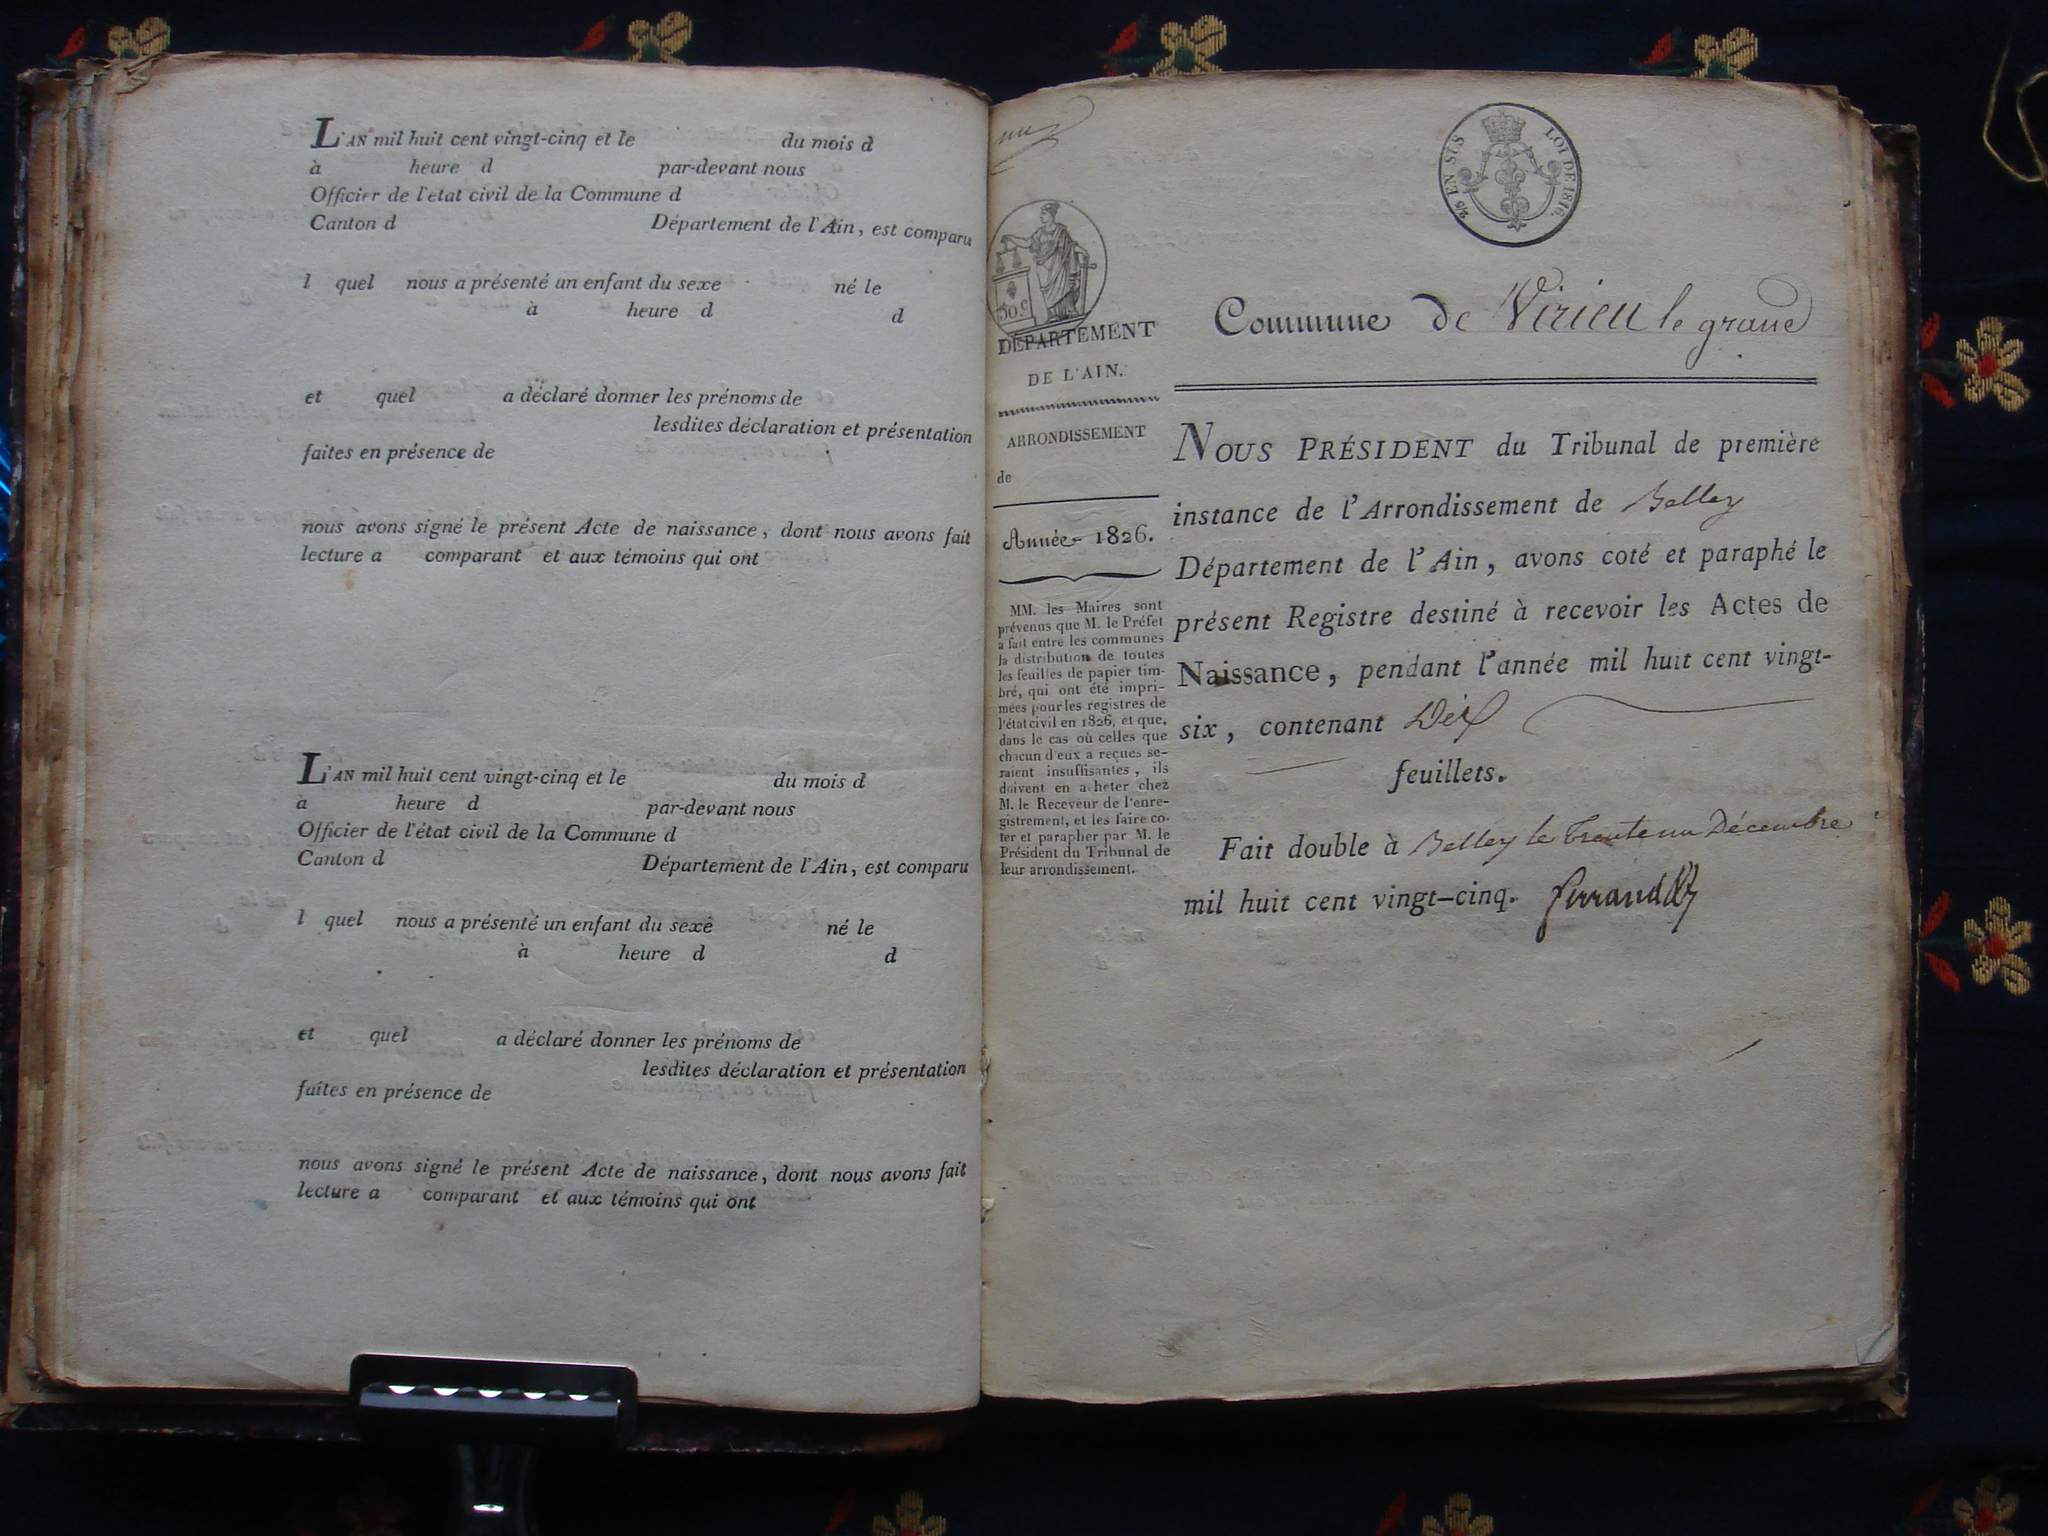 L'AN mil huit cent vingt-cinq et le du mois d
à heure d par-devant nous
Officier de l'etat civil de la Commune d
Canton d Département de l'Ain, est comparu
l quel nous a présenté un enfant du sexe né le
à heure d d
et quel a déclaré donner les prénoms de
lesdites déclaration et présentation
faites en présence de
nous avons signé le présent Acte de naissance, dont nous avons fait
lecture a comparant et aux témoins qui ont
L'AN mil huit cent vingt-cinq et le du mois d
à heure d par-devant nous
Officier de l'état civil de la Commune d
Canton d Département de l'Ain, est comparu
l quel nous a présenté un enfant du sexe né le
à heure d d
et quel a déclaré donner les prénoms de
lesdites déclaration et présentation
faites en présence de
nous avons signé le présent Acte de naissance, dont nous avons fait
lecture a comparant et aux témoins qui ont
25 EN SUS LOI DE 1816.
50. C
DÉPARTEMENT
DE L'AIN.
ARRONDISSEMENT
de
Année 1826.
MM. les Maires sont
prévenus que M. le Préfet
a fait entre les communes
la distribution de toutes
les feuilles de papier tim-
bré, qui ont été impri-
mées pour les registres de
l'état civil en 1826, et que,
dans le cas où celles que
chacun d'eux a reçues se-
raient insuffisantes, ils
doivent en acheter chez
M. le Receveur de l'enre-
gistrement, et les faire co-
ter et parapher par M. le
Président du Tribunal de
leur arrondissement.
Commune de Virieu le grand
NOUS PRÉSIDENT du Tribunal de première
instance de l'Arrondissement de Belley
Département de l'Ain, avons coté et paraphé le
présent Registre destiné à recevoir les Actes de
Naissance, pendant l'année mil huit cent vingt-
six, contenant Dix
feuillets.
Fait double à Belley le trente un Décembre
mil huit cent vingt-cinq.